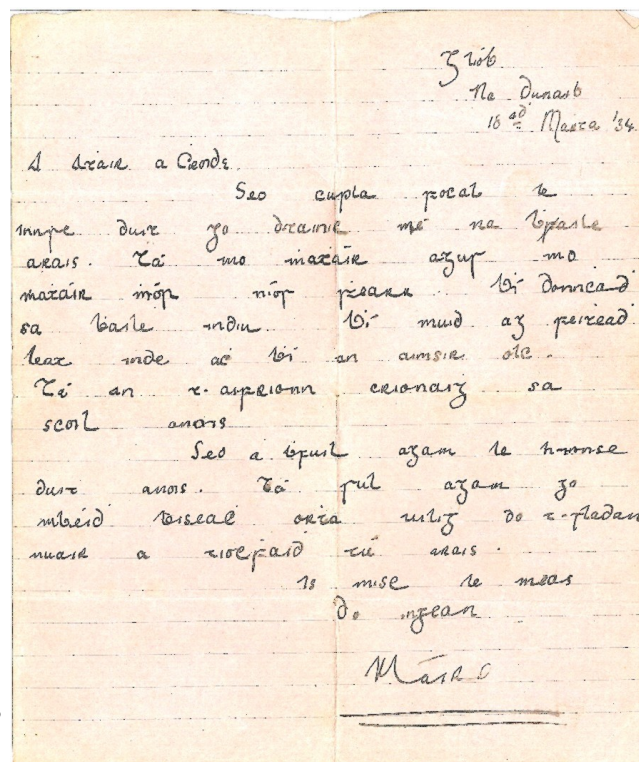 Na Dunaib
18ad Marta '34.
A Atair a
Seo cupla focal le
innse duit go dtainic mé na bfaile
arais. Tá mo matair agus mo
matair mór níos fearr. Bí Donncad
sa baile indiu. Bí muid ag feitead
leat inde ac bí an aimsir olc.
Tá an t-aifrionn sa
scoil anois
Seo a bfuil agam le h-innse
duit anois. Tá súil agam go
mbeid biseac orta uilig do
nuair a tiocfaid tú arais.
Is mise le meas
Do ingean
Máire